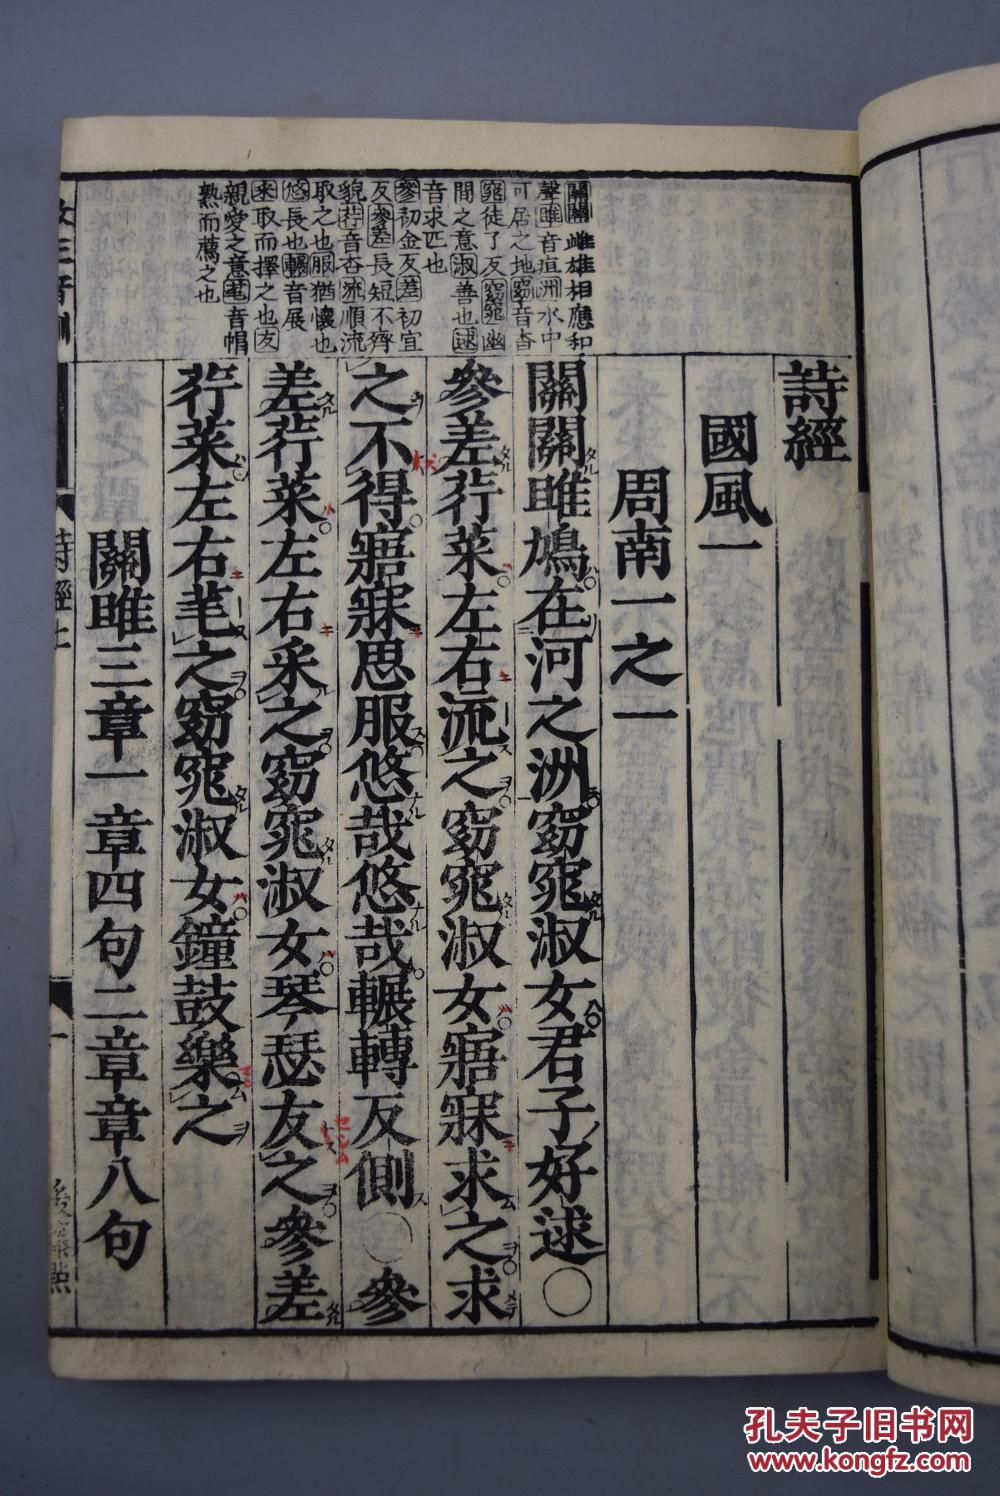 關關雌雄相應和
聲雎音疽洲水中
可居之地窈音杳
窕徒了反窈窕幽
間之意淑善也逑
音求匹也
參初金反差初宜
反參差長短不齊
貌荇音杏流順流
取之也服猶懷也
悠長也輾音展
采取而擇之也友
親愛之意芼音帽
熟而薦之也
詩經
國風一
周南一之一
關關雎鳩在河之洲窈窕淑女君子好逑〇
參差荇菜左右流之窈窕淑女寤寐求之求
之不得寤寐思服悠哉悠哉輾轉反側〇參
差荇菜左右采之窈窕淑女琴瑟友之參差
荇菜左右芼之窈窕淑女鐘鼓樂之
關雎三章一章四句二章章八句
詩經上
一
孔夫子旧书网
www.kongfz.com